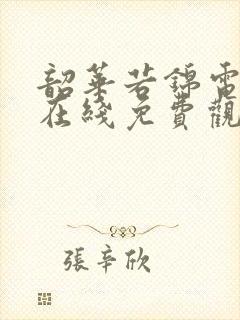 韶華若錦電
在綫免費觀
張辛欣